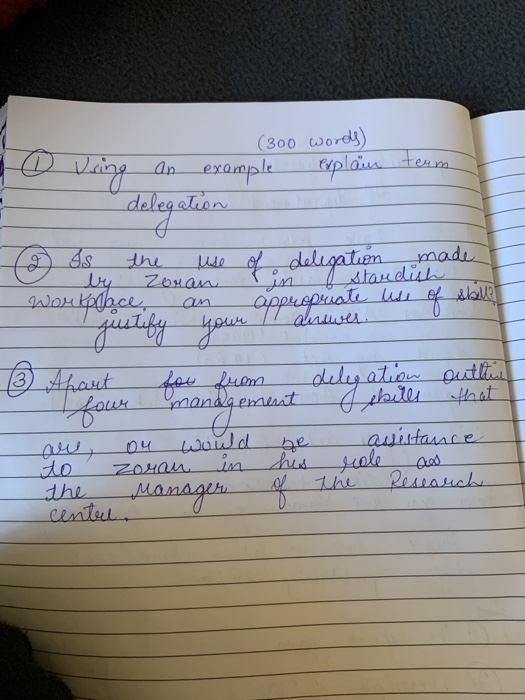 (300 words)
① Using an example explain term
delegation
② Is the use of delegation made
by Zoran in standish
workplace, an appropriate use of skill?
justify your answer.
③ Apart from delegation outline
four management skills that
are, or would be assistance
to Zoran in his role as
the Manager of the Research
centre.